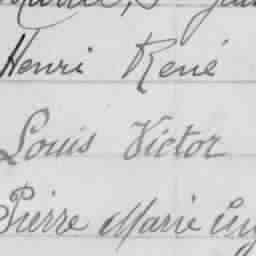 Henri René
Louis Victor
Pierre Marie